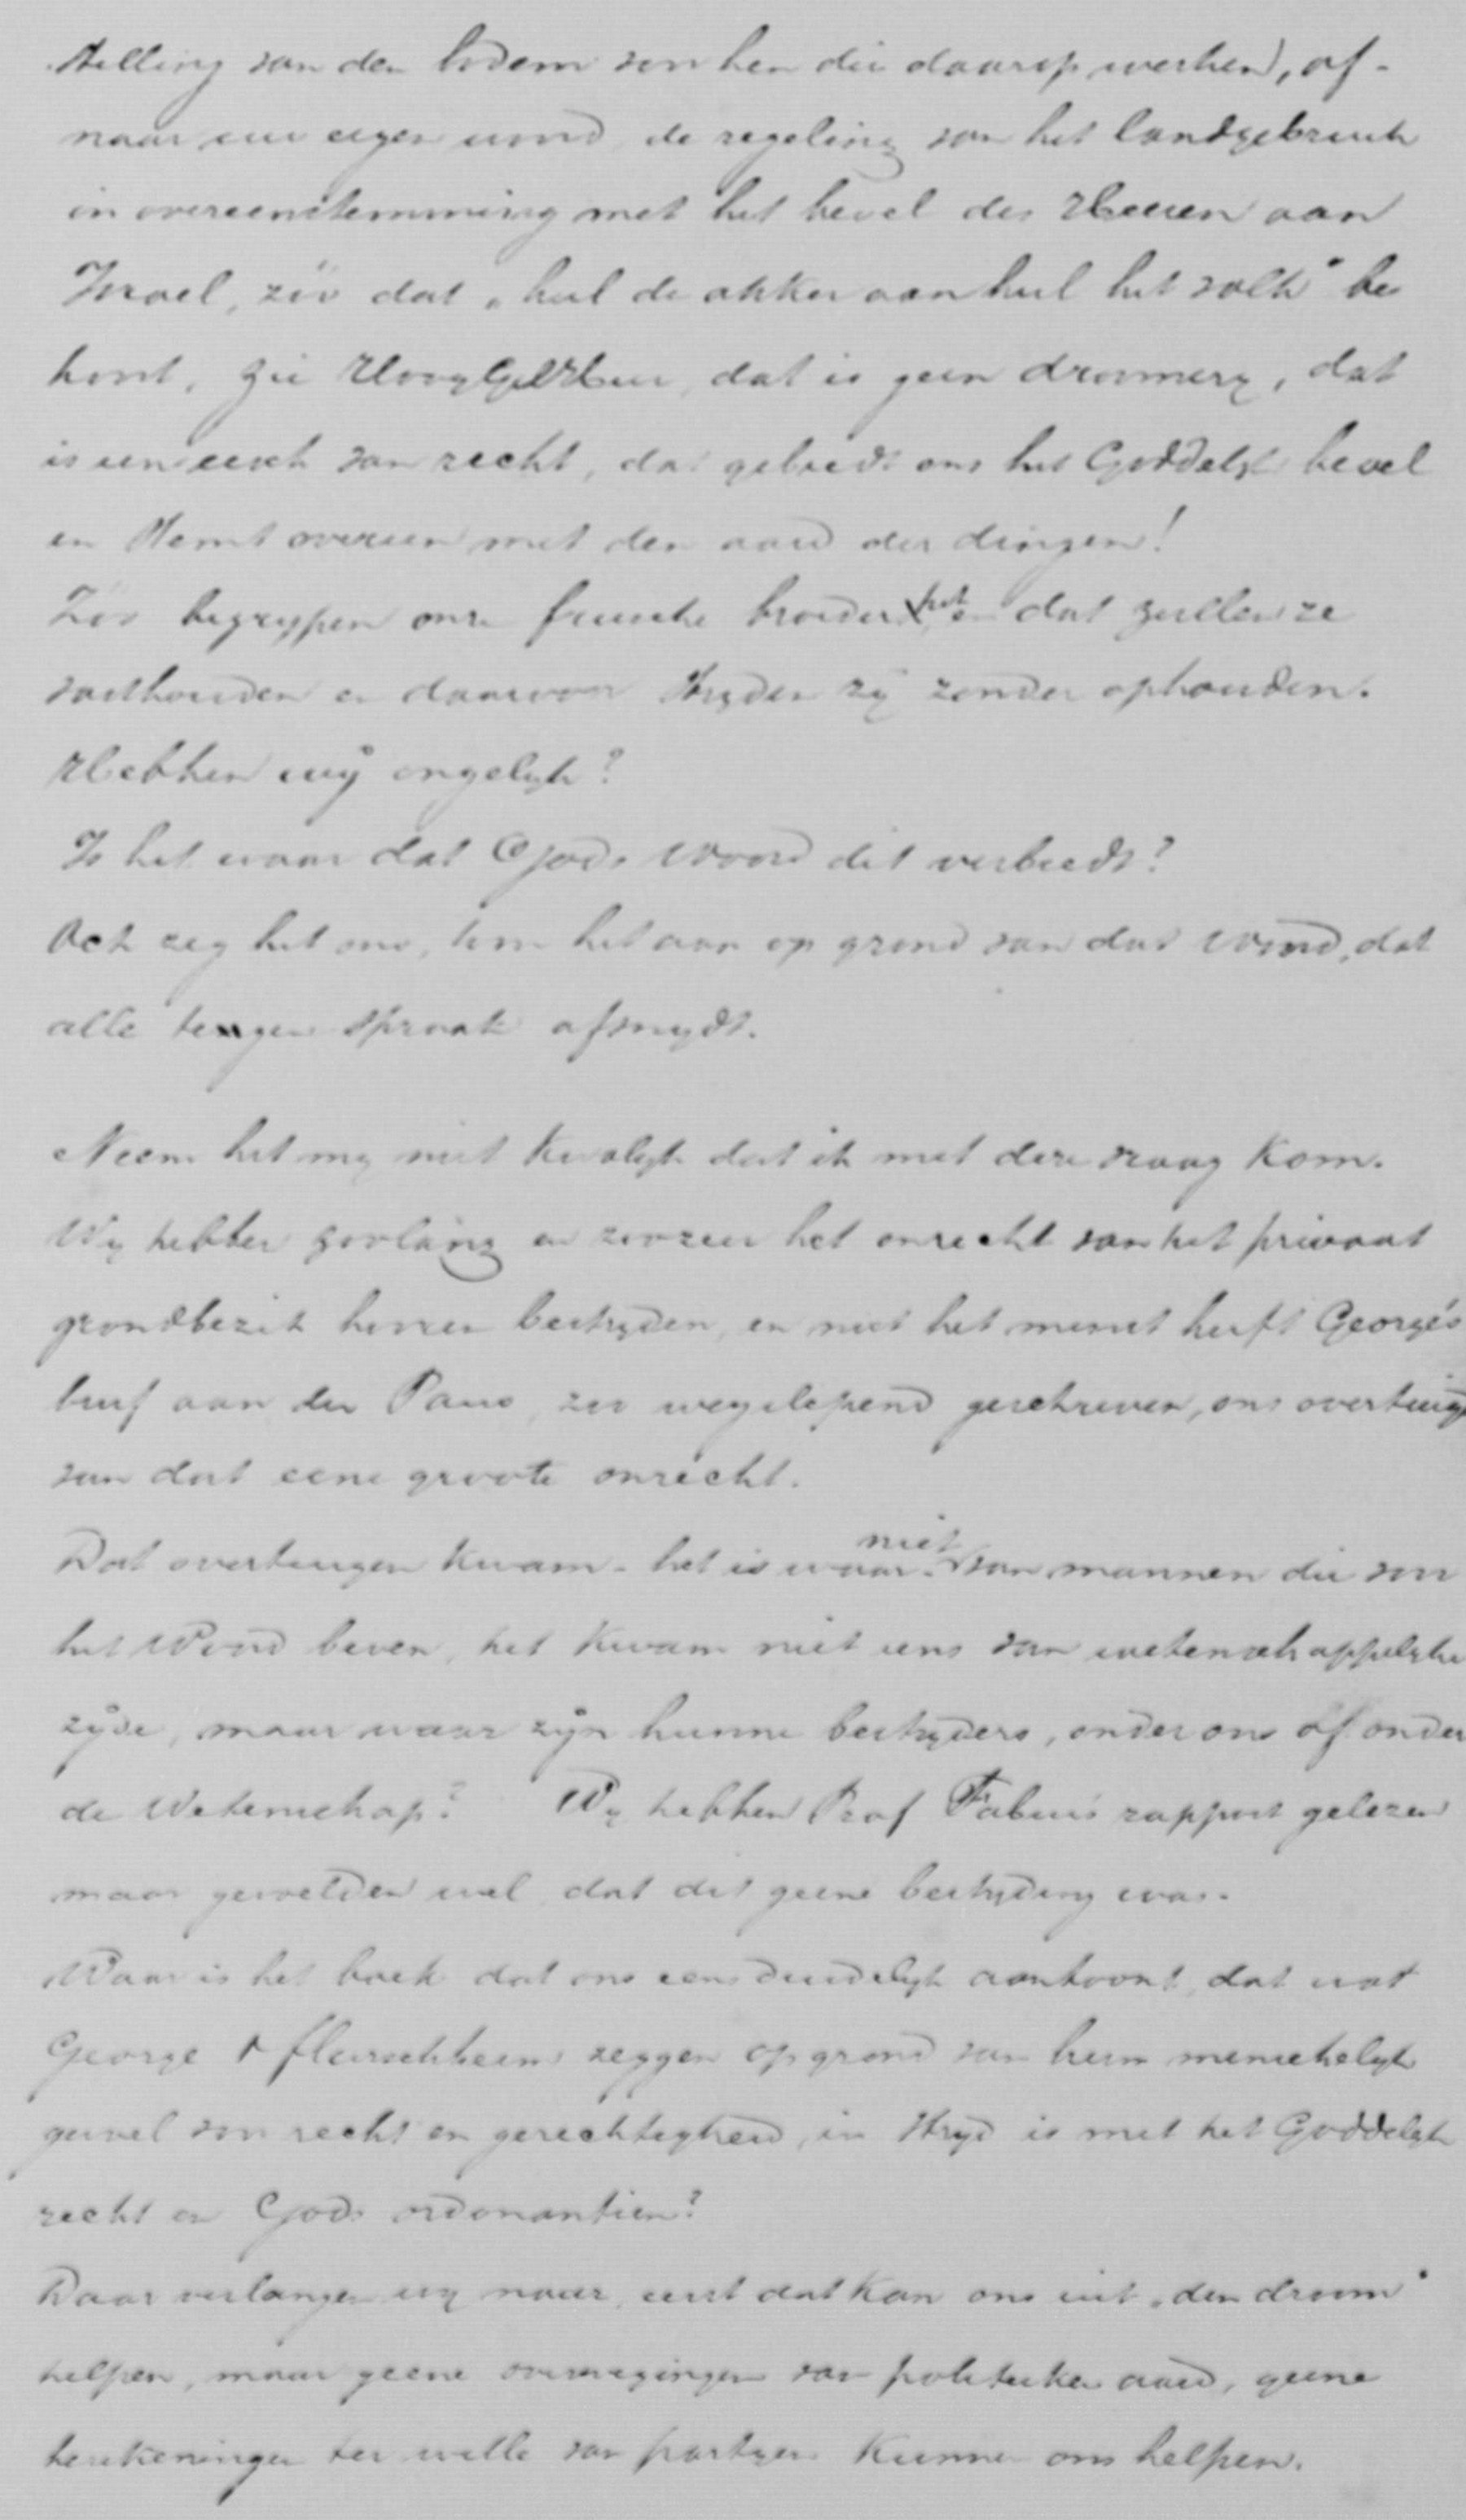 stelling van den bodem von hen die daarop werken, of -
naar uw eigen woord de regeling van het landgebruik
in overeenstemming met het bevel des Heeren aan
Israel, zóó dat „heel de akker aan heel het volk" be
hoort, zie HoogGelHeer, dat is geen droomery, dat
is een eisch van recht, dat gebiedt ons het Goddelyk bevel
en stemt overeen met den aard der dingen!
Zóó begrypen onze friesche broeders het en dat zullen ze
vasthouden en daarvoor stryden zy zonder ophouden.
Hebben wÿ ongelyk?
Is het waar dat Gods Woord dit verbiedt?
Och zeg het ons, toon het aan op grond van dat Woord, dat
alle tegen spraak afsnydt.
Neem het my niet kwalyk dat ik met deze vraag kom.
Wy hebben zoolang en zoozeer het onrecht van het privaat
grondbezit hooren bestryden, en niet het minst heeft George's
brief aan den Paus, zoo wegslepend geschreven, ons overtuigd
van dat eene groote onrecht.
Dat overtuigen kwam - het is waar - niet van mannen die voor
het Woord beven, het kwam niet eens van wetenschappelyke
zÿde, maar waar zÿn hunne bestryders, onder ons of onder
de Wetenschap? Wy hebben Prof Fabius rapport gelezen
maar gevoelden wel dat dit geene bestryding was.
Waar is het boek dat ons eens duidelyk aantoont, dat wat
George & flürscheim zeggen op grond van hun menschelyk
gevoel von recht en gerechtigheid, in stryd is met het Goddelyk
recht en Gods ordonantien?
Daar verlangen wy naar, eerst dat kan ons uit „den droom"
helpen, maar geene overwegingen van politieken aard, geene
berekeningen ter wille van partyen kunnen ons helpen.